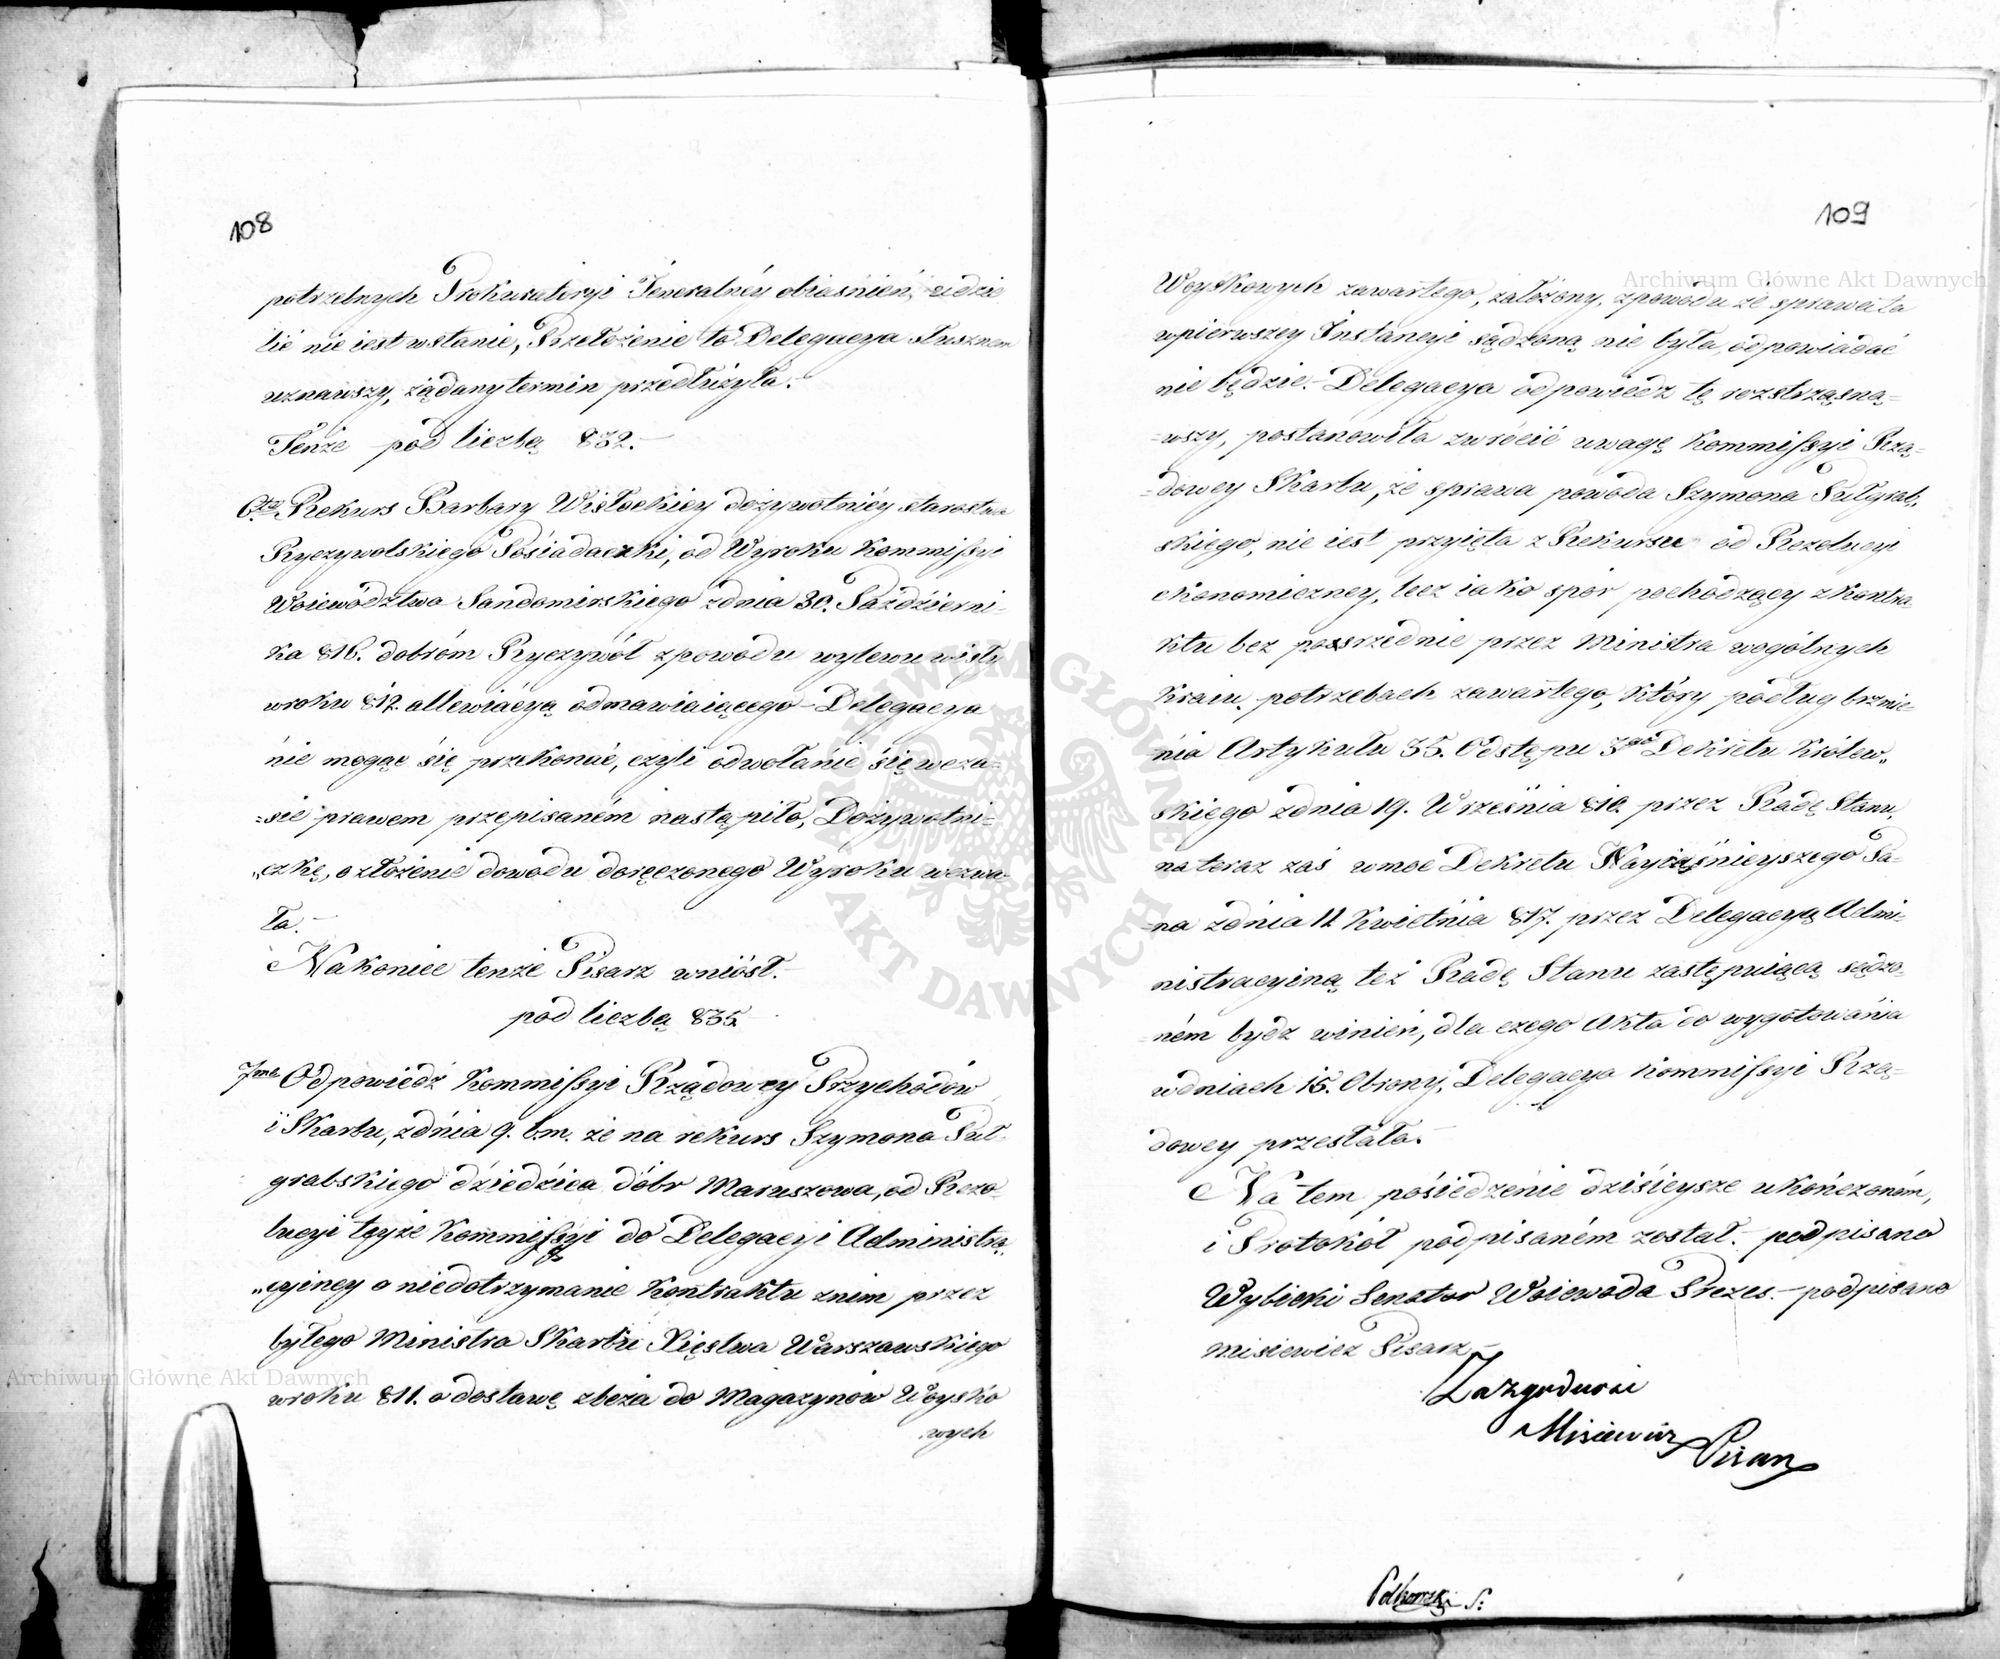 108
potrzebnych Prokuratoryi Jeneralnéy obiaśnień, udzie
lić nie iest wstanie, Przełożenie to Delegacya słusznem
uznawszy, żądany termin przedłużyła.-
Tenże pod liczbą 832.-
6.te Rekurs Barbary Wisłockiey dożywotniéy starostwa
Ryczywolskiego Posiadaczki, od Wyroku Kommissyi
Woiewództwa Sandomirskiego zdnia 30. Październi-
ka 816. dobróm Ryczywół zpowodu wylewu wisły
wroku 812. allewiacyą odmawiaiącego - Delegacya
nie mogąc się przekonać, czyli odwołanie się wcza-
=sie prawem przepisaném nastąpiło, Dożywotni=
„czkę, o złożenie dowodu doręczonego Wyroku wezwa-
ła.-
Nakoniec tenże Pisarz wniósł.-
pod liczbą 835.
7me Odpowiedź Kommissyi Rządowey Przychodów
i Skarbu, zdnia 9. b.m. że na rekurs Szymona Puł-
grabskiego dziedzica dóbr Maruszowa, od Rezo-
lucyi teyże Kommissyi do Delegacyi Administra„
„cyiney o niedotrzymanie Kontraktu znim przez
byłego Ministra Skarbu Xięstwa Warszawskiego
wroku 811. o dostawę zboża do Magazynów Woysko
wych
109
Woyskowych zawartego, założony, zpowodu że sprawa ta
wpierwszey Instancyi sądzoną nie była, odpowiadać
nie będzie.- Delegacya odpowiedz tę rozstrząsną=
=wszy, postanowiła zwrócić uwagę Kommissyi Rzą=
=dowey Skarbu, że sprawa powoda Szymona Pułgrab„
skiego, nie iest przyięta z Rekursu od Rezolucyi
ekonomiczney, lecz iako spór pochodzący z kontra
ktu bez posrzednie przez Ministra wogólnych
Kraiu potrzebach zawartego, który podług brzmie=
nia Artykułu 35. Odstępu 3go Dekretu Królew„
skiego zdnia 19. Września 810. przez Radę Stanu,
na teraz zaś wmoc Dekretu Nayiaśnieyszego Pa-
=na zdnia 11. Kwietnia 817. przez Delegacyą Admi-
nistracyiną też Radę Stanu zastępuiącą sądzo-
=ném bydz winien, dla czego Akta do wygotowania
wdniach 15. Obrony, Delegacya Kommissyi Rzą=
dowey przesłała.-
Na tem pośiedzenie dziśieysze ukończoném,
i Protokół podpisaném został.- podpisano
Wybicki Senator Woiewoda Prezes.- podpisano
Misiewicz Pisarz.-
Za zgodność
Misiewicz Pisarz
Archiwum Główne Akt Dawnych
Archiwum Główne Akt Dawnych
ARCHIWUM GŁÓWNE AKT DAWNYCH